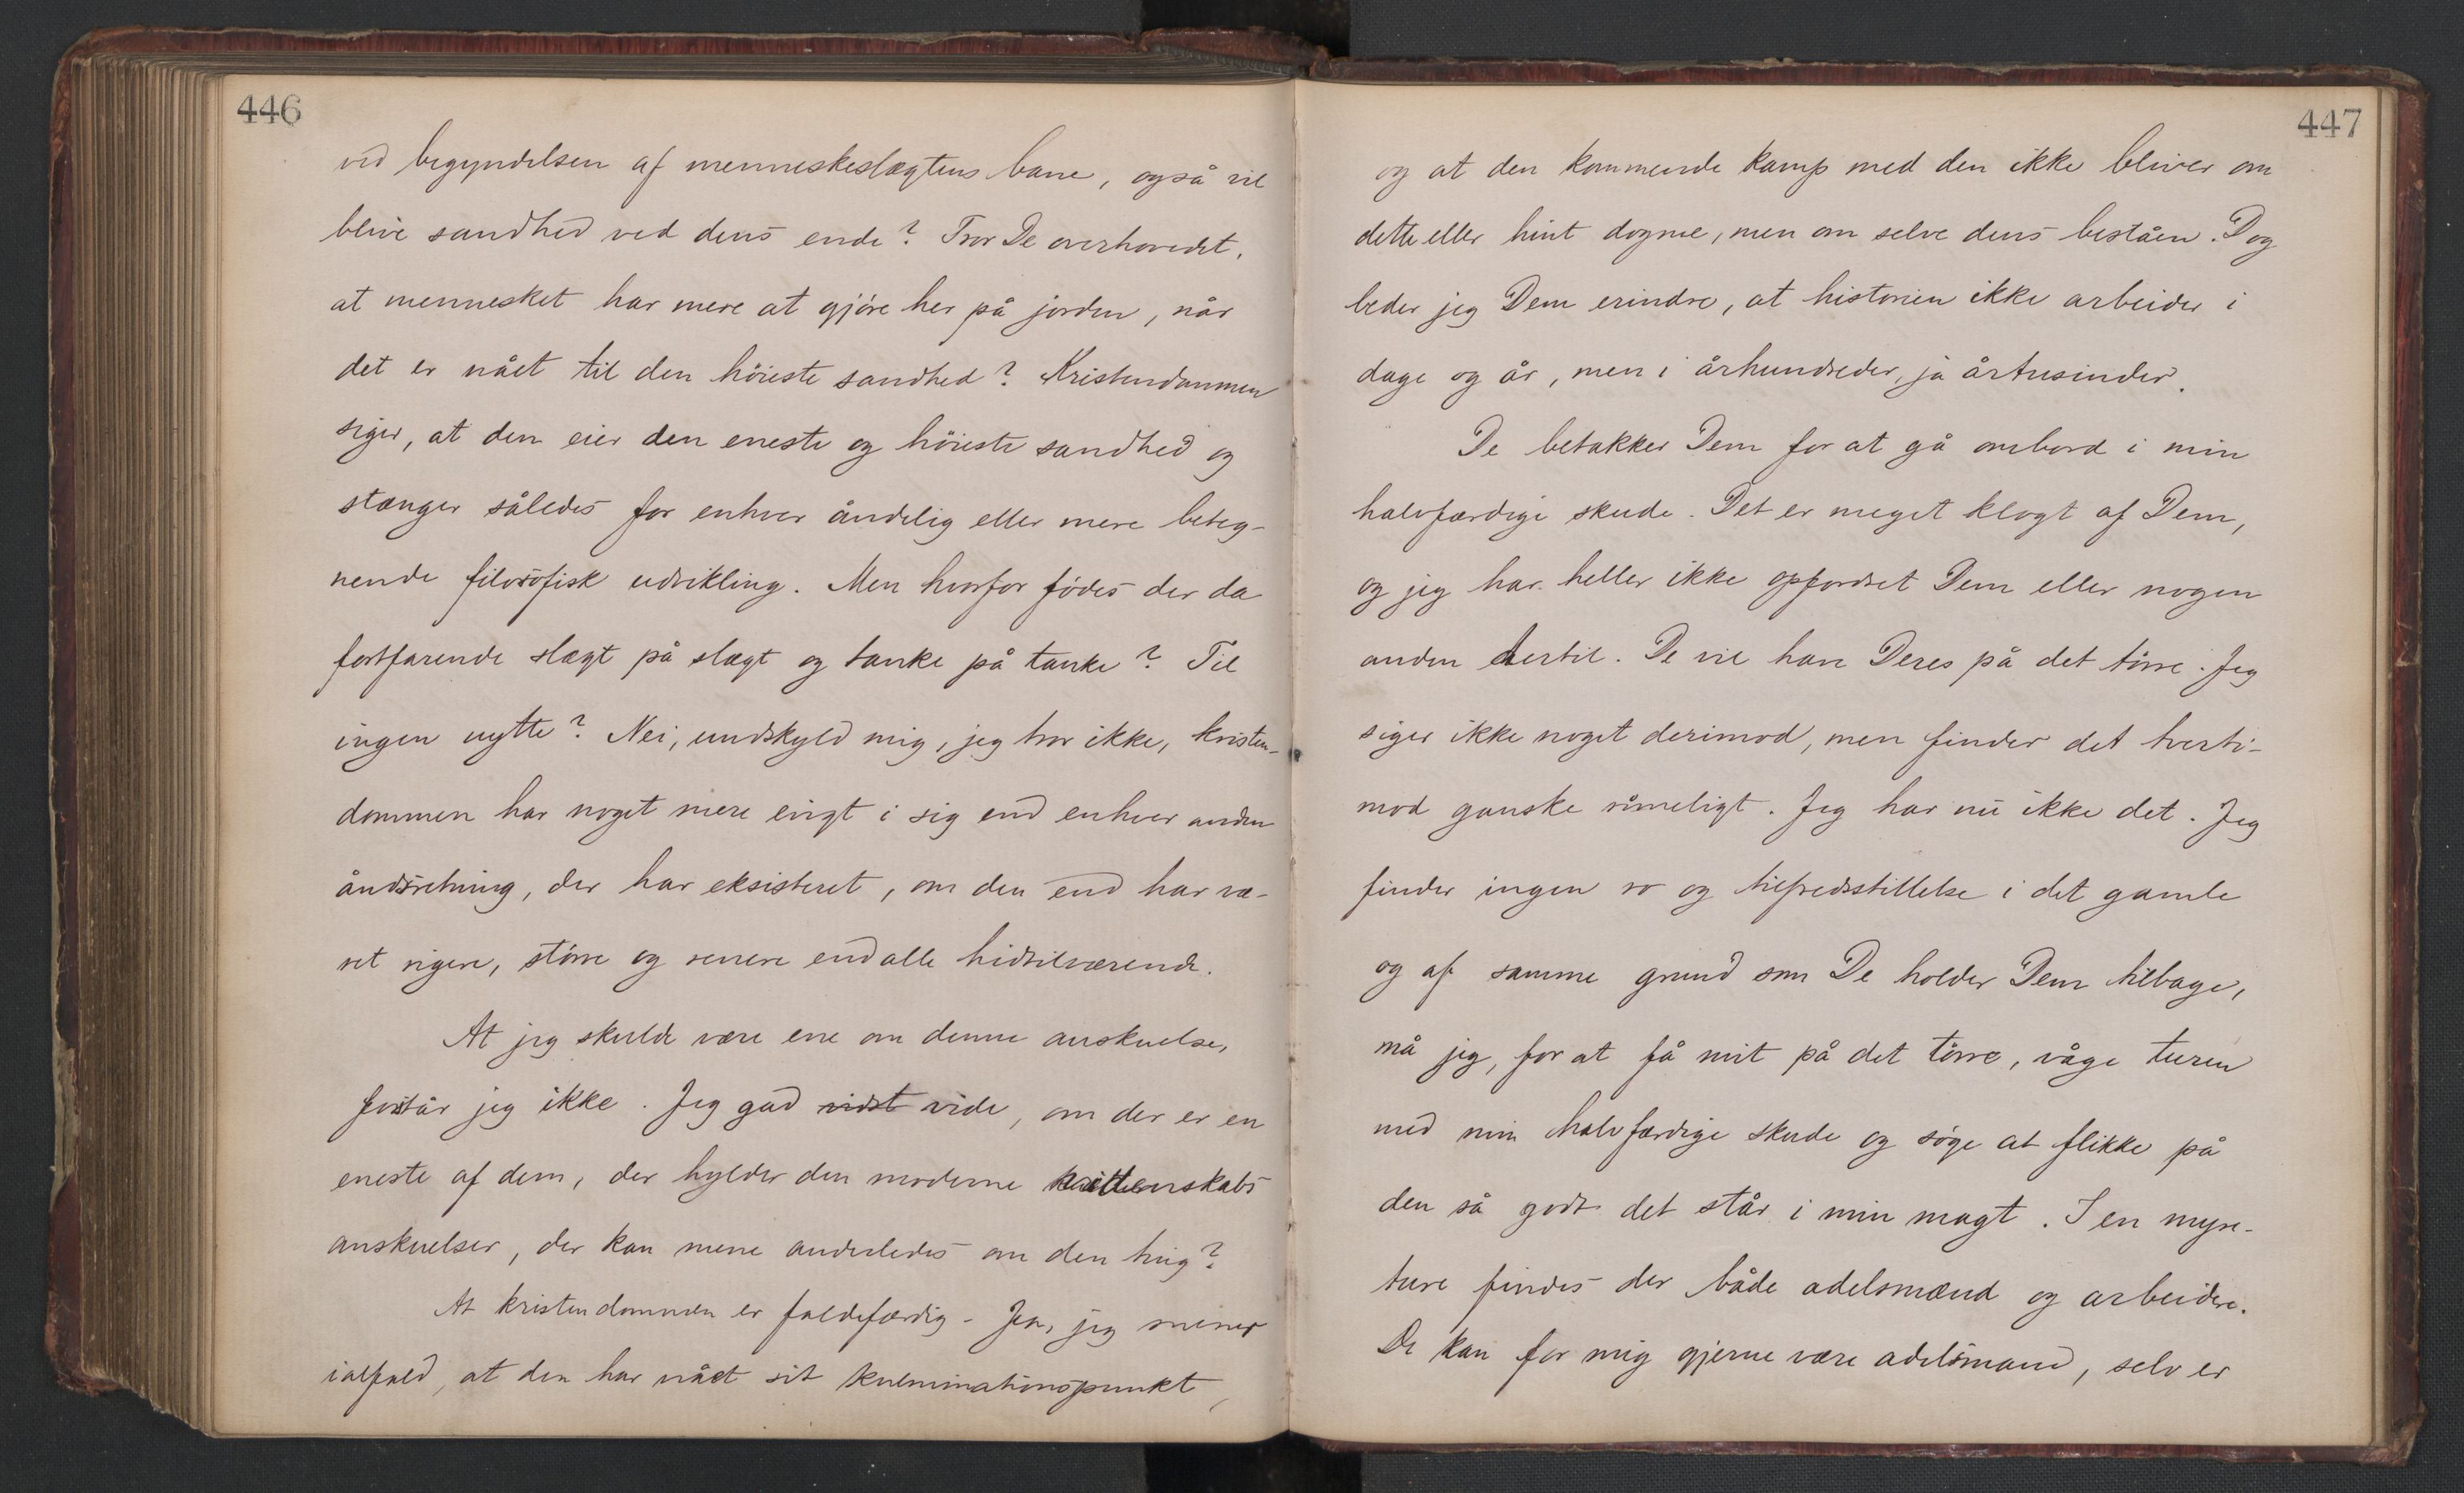 446
ved begyndelsen af menneskeslægtens bane, også vil
blive sandhed ved dens ende? Tror De overhovedet,
at mennesket har mere at gjöre her på jorden, når
det er nået til den höieste sandhed? Kristendommen
siger, at den eier den eneste og höieste sandhed og
stænger således for enhver åndelig eller mere beteg-
nende filosofisk udvikling. Men hvorfor födes der da
fortfarende slægt på slægt og tanke på tanke? Til
ingen nytte? Nei, undskyld mig, jeg tror ikke, kristen-
dommen har noget mere evigt i sig end enhver anden
åndsretning, der har eksisteret, om den end har væ-
ret rigere, större og renere end alle hidtilværende.
At jeg skulde være ene om denne anskuelse,
forstår jeg ikke. Jeg gad vidst vide, om der er en
eneste af dem, der hylder den moderne videnskabs
anskuelser, der kan mene anderledes om den ting?
At kristendommen er faldefærdig - Jea, jeg mener
ialfald, at den har nået sit kulminationspunkt,
447
og at den kommende kamp med den ikke bliver om
dette eller hint dogme, men om selve dens beståen. Dog
beder jeg Dem erindre, at historien ikke arbeider i
dage og år, men i århundreder, ja årtusinder.
De betakker Dem for at gå ombord i min
halvfærdige skude. Det er meget klogt af Dem,
og jeg har heller ikke opfordret Dem eller nogen
anden dertil. De vil have Deres på det törre. Jeg
siger ikke noget derimod, men finder det tverti-
mod ganske rimeligt. Jeg har nu ikke det. Jeg
finder ingen ro og tilfredsstillelse i det gamle
og af samme grund som De holder Dem tilbage,
må jeg, for at få mit på det törre, våge turen
med min halvfærdige skude og söge at flikke på
den så godt det står i min magt. I en myre-
tue findes der både adelsmænd og arbeidere.
De kan for mig gjerne være adelsmand, selv er